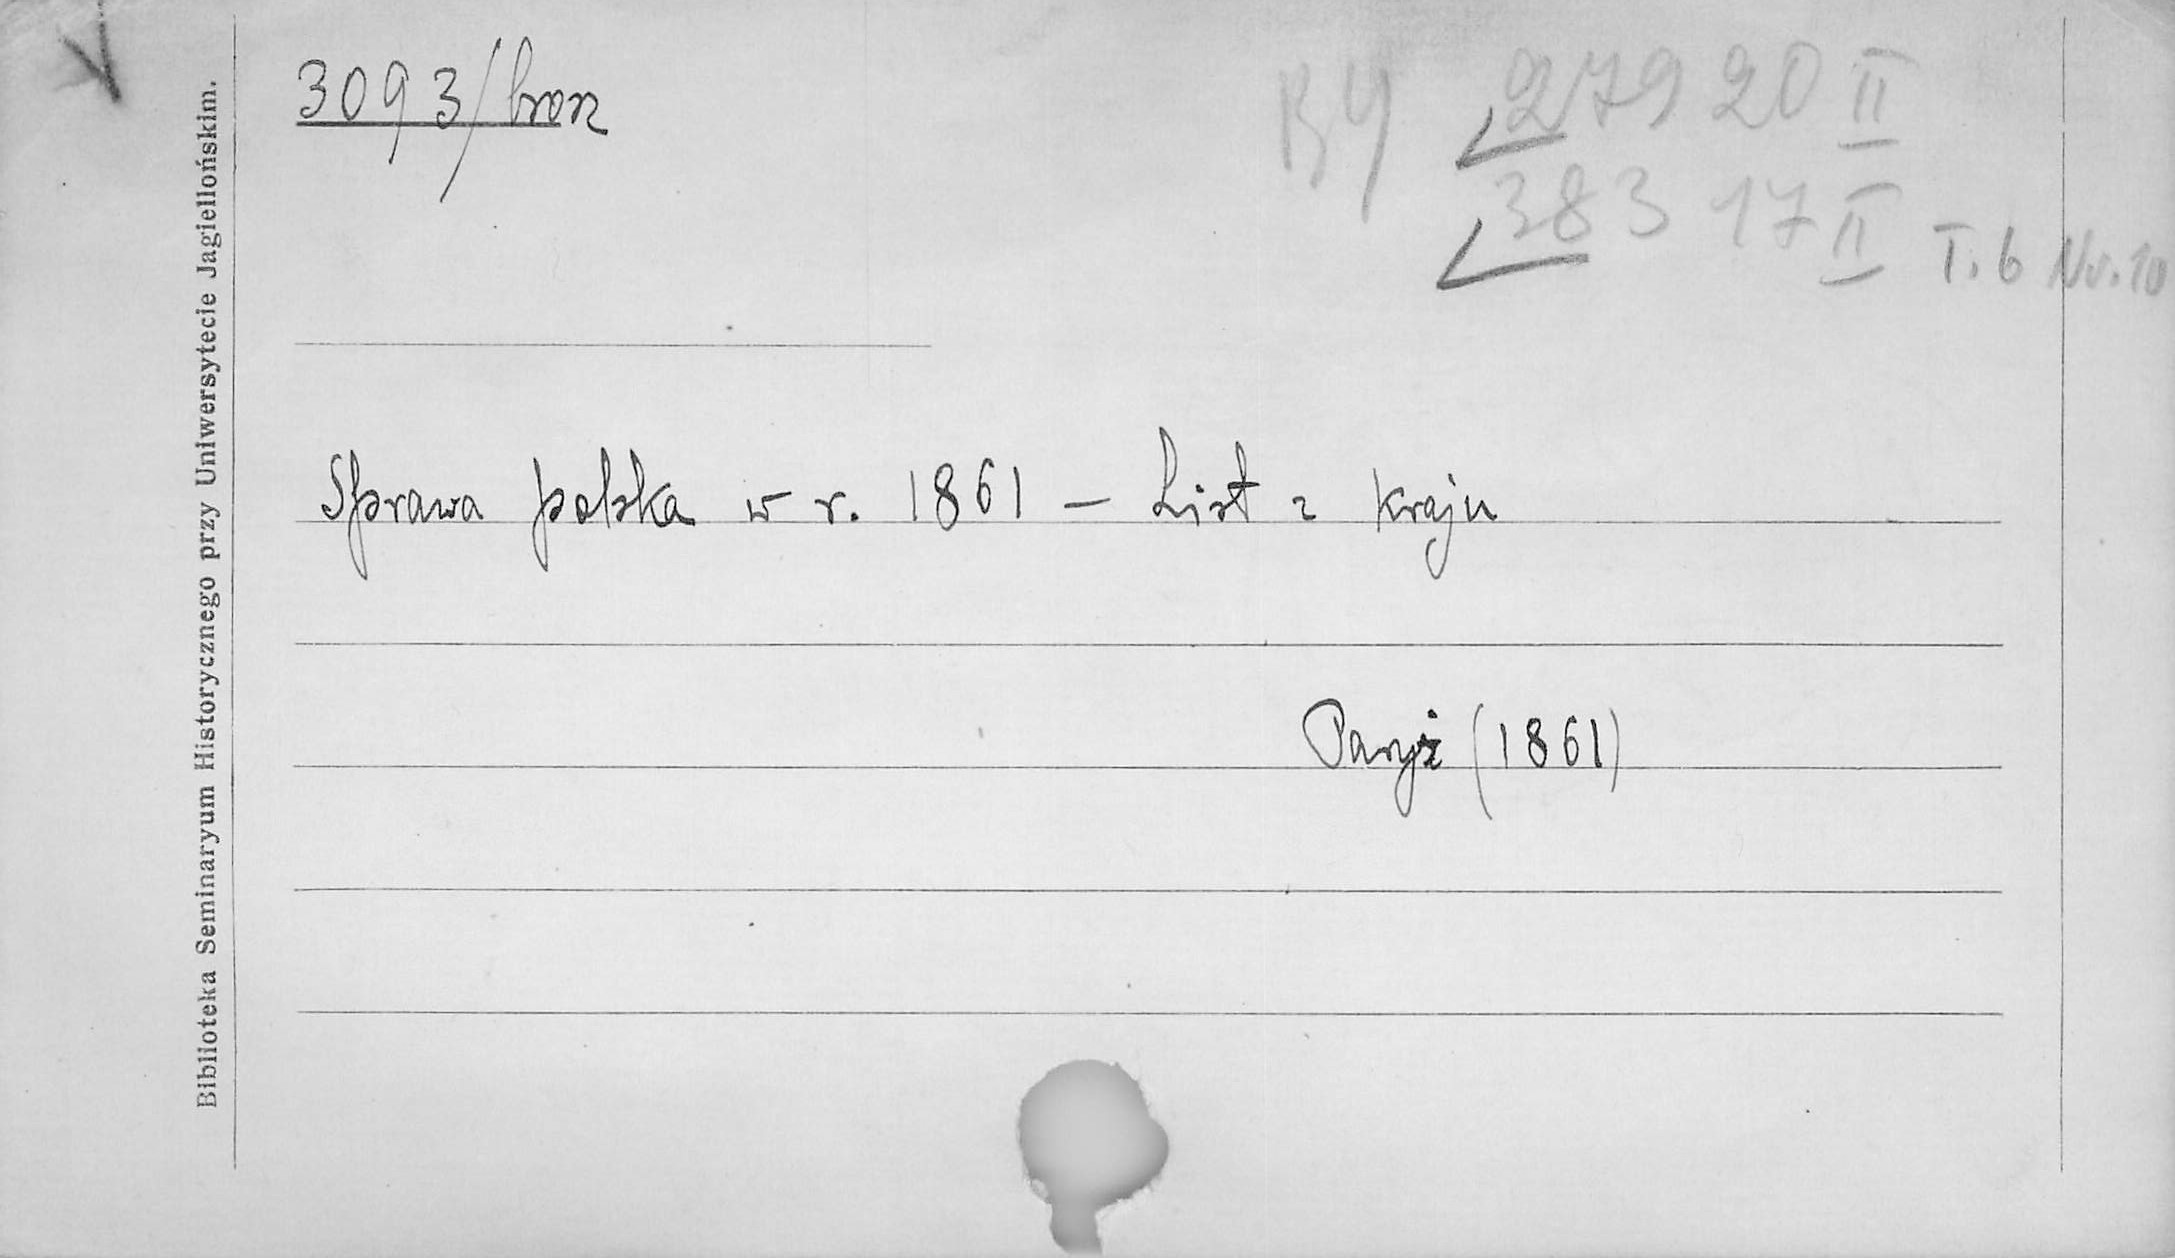 3093/bron
BJ 27920 II
38317 II T. 6 Nr. 10
Sprawa polska w r. 1861 – List z kraju
Paryż (1861)
Biblioteka Seminaryum Historycznego przy Uniwersytecie Jagiellońskim.